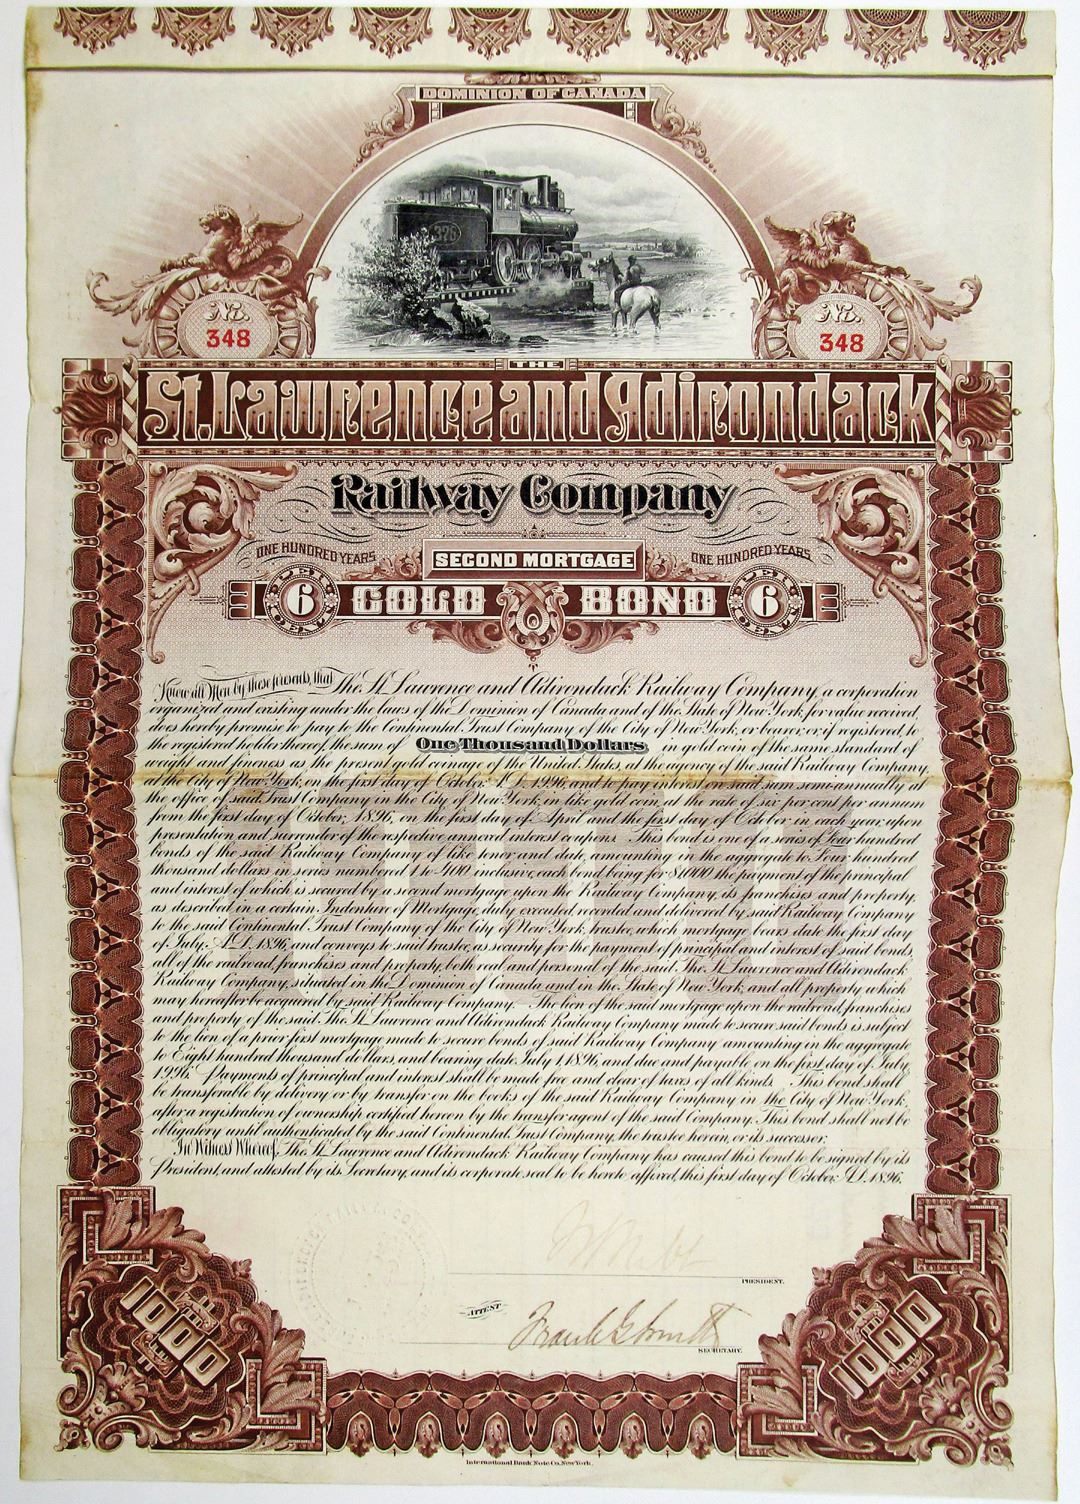 DOMINION OF CANADA
376
No. 348
No. 348
THE
St. Lawrence and Adirondack
Railway Company
ONE HUNDRED YEARS SECOND MORTGAGE ONE HUNDRED YEARS
6 GOLD BOND 6
Know all Men by these presents, that The St. Lawrence and Adirondack Railway Company, a corporation
organized and existing under the laws of the Dominion of Canada and of the State of New York, for value received,
does hereby promise to pay to the Continental Trust Company of the City of New York, or bearer, or, if registered, to
the registered holder thereof, the sum of One Thousand Dollars in gold coin of the same standard of
weight and fineness as the present gold coinage of the United States, at the agency of the said Railway Company,
at the City of New York, on the first day of October, A.D. 1996, and to pay interest on said sum semi-annually at
the office of said Trust Company in the City of New York, in like gold coin, at the rate of six per cent per annum
from the first day of October, 1896, on the first day of April and the first day of October in each year, upon
presentation and surrender of the respective annexed interest coupons. This bond is one of a series of Four hundred
bonds of the said Railway Company of like tenor and date, amounting in the aggregate to Four hundred
thousand dollars in series numbered 1 to 400 inclusive, each bond being for $1000 the payment of the principal
and interest of which is secured by a second mortgage upon the Railway Company, its franchises and property,
as described in a certain Indenture of Mortgage, duly executed, recorded and delivered by said Railway Company
to the said Continental Trust Company of the City of New York, trustee, which mortgage bears date the first day
of July, A.D. 1896, and conveys to said trustee, as security for the payment of principal and interest of said bonds,
all of the railroad, franchises and property, both real and personal of the said The St. Lawrence and Adirondack
Railway Company, situated in the Dominion of Canada and in the State of New York, and all property which
may hereafter be acquired by said Railway Company. The lien of the said mortgage upon the railroad, franchises
and property of the said The St. Lawrence and Adirondack Railway Company made to secure said bonds is subject
to the lien of a prior first mortgage made to secure bonds of said Railway Company amounting in the aggregate
to Eight hundred thousand dollars, and bearing date July 1, 1896, and due and payable on the first day of July,
1996. Payments of principal and interest shall be made free and clear of taxes of all kinds. This bond shall
be transferable by delivery or by transfer on the books of the said Railway Company in the City of New York,
after a registration of ownership certified hereon by the transfer agent of the said Company. This bond shall not be
obligatory until authenticated by the said Continental Trust Company, the trustee herein, or its successor.
In Witness Whereof, The St. Lawrence and Adirondack Railway Company has caused this bond to be signed by its
President, and attested by its Secretary, and its corporate seal to be hereto affixed, this first day of October, A.D. 1896.
PRESIDENT.
ATTEST Frank G. Smith
SECRETARY.
1000
1000
International Bank Note Co. New York.